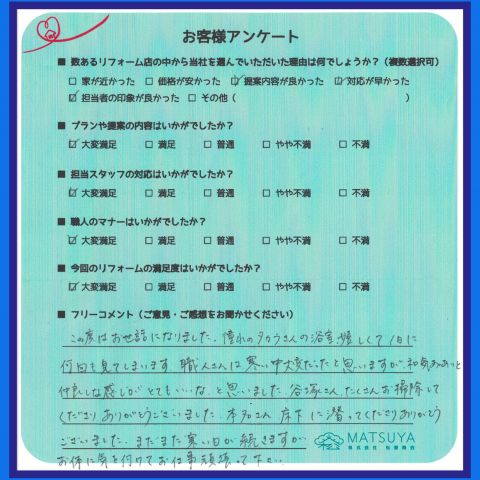 お客様アンケート
■ 数あるリフォーム店の中から当社を選んでいただいた理由は何でしょうか?（複数選択可）
□ 家が近かった □ 価格が安かった ☑ 提案内容が良かった ☑ 対応が早かった
☑ 担当者の印象が良かった □ その他（ ）
■ プランや提案の内容はいかがでしたか?
☑ 大変満足 □ 満足 □ 普通 □ やや不満 □ 不満
■ 担当スタッフの対応はいかがでしたか?
☑ 大変満足 □ 満足 □ 普通 □ やや不満 □ 不満
■ 職人のマナーはいかがでしたか?
☑ 大変満足 □ 満足 □ 普通 □ やや不満 □ 不満
■ 今回のリフォームの満足度はいかがでしたか?
☑ 大変満足 □ 満足 □ 普通 □ やや不満 □ 不満
■ フリーコメント（ご意見・ご感想をお聞かせください）
この度はお世話になりました。憧れのタカラさんの浴室嬉しくて1日に
何回も見てしまいます。職人さんは寒い中大変だったと思いますが、和気あいあいと
仲良しな感じがとてもいいな、と思いました。谷塚さん、たくさんお掃除して
くださりありがとうございました。本多さん 床下に潜ってくださりありがとう
ございました。まだまだ寒い日が続きますが
お体に気を付けてお仕事頑張って下さい。
MATSUYA